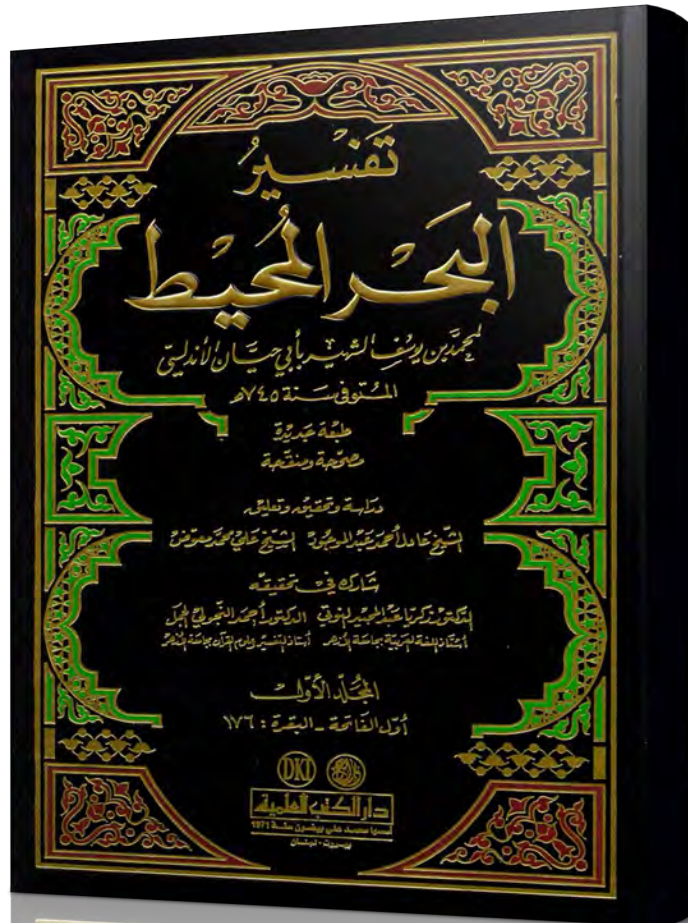 تَفْسِيرُ
البَحْرِ المُحِيْطِ
لمحمَّد بن يوسف الشهير بأبي حيَّان الأندلسي
المتوفى سَنة ٧٤٥ھ
طبعة جديدة
مصحّحة ومنقّحة
دراسة وتحقيق وتعليق
الشيخ عادل أحمد عبد الموجود الشيخ علي محمد معوض
شارك في تحقيقه
الدكتور زكريا عبد المجيد النوتي الدكتور أحمد النجولي الجمل
أستاذ اللغة العربية بجامعة الأزهر أستاذ التفسير وعلوم القرآن بجامعة الأزهر
المجلّد الأوّل
أول الفاتحة - البقرة : ١٧٦
DKI
دار الكتب العلمية
أسسها محمد علي بيضون سنة 1971
بيروت - لبنان